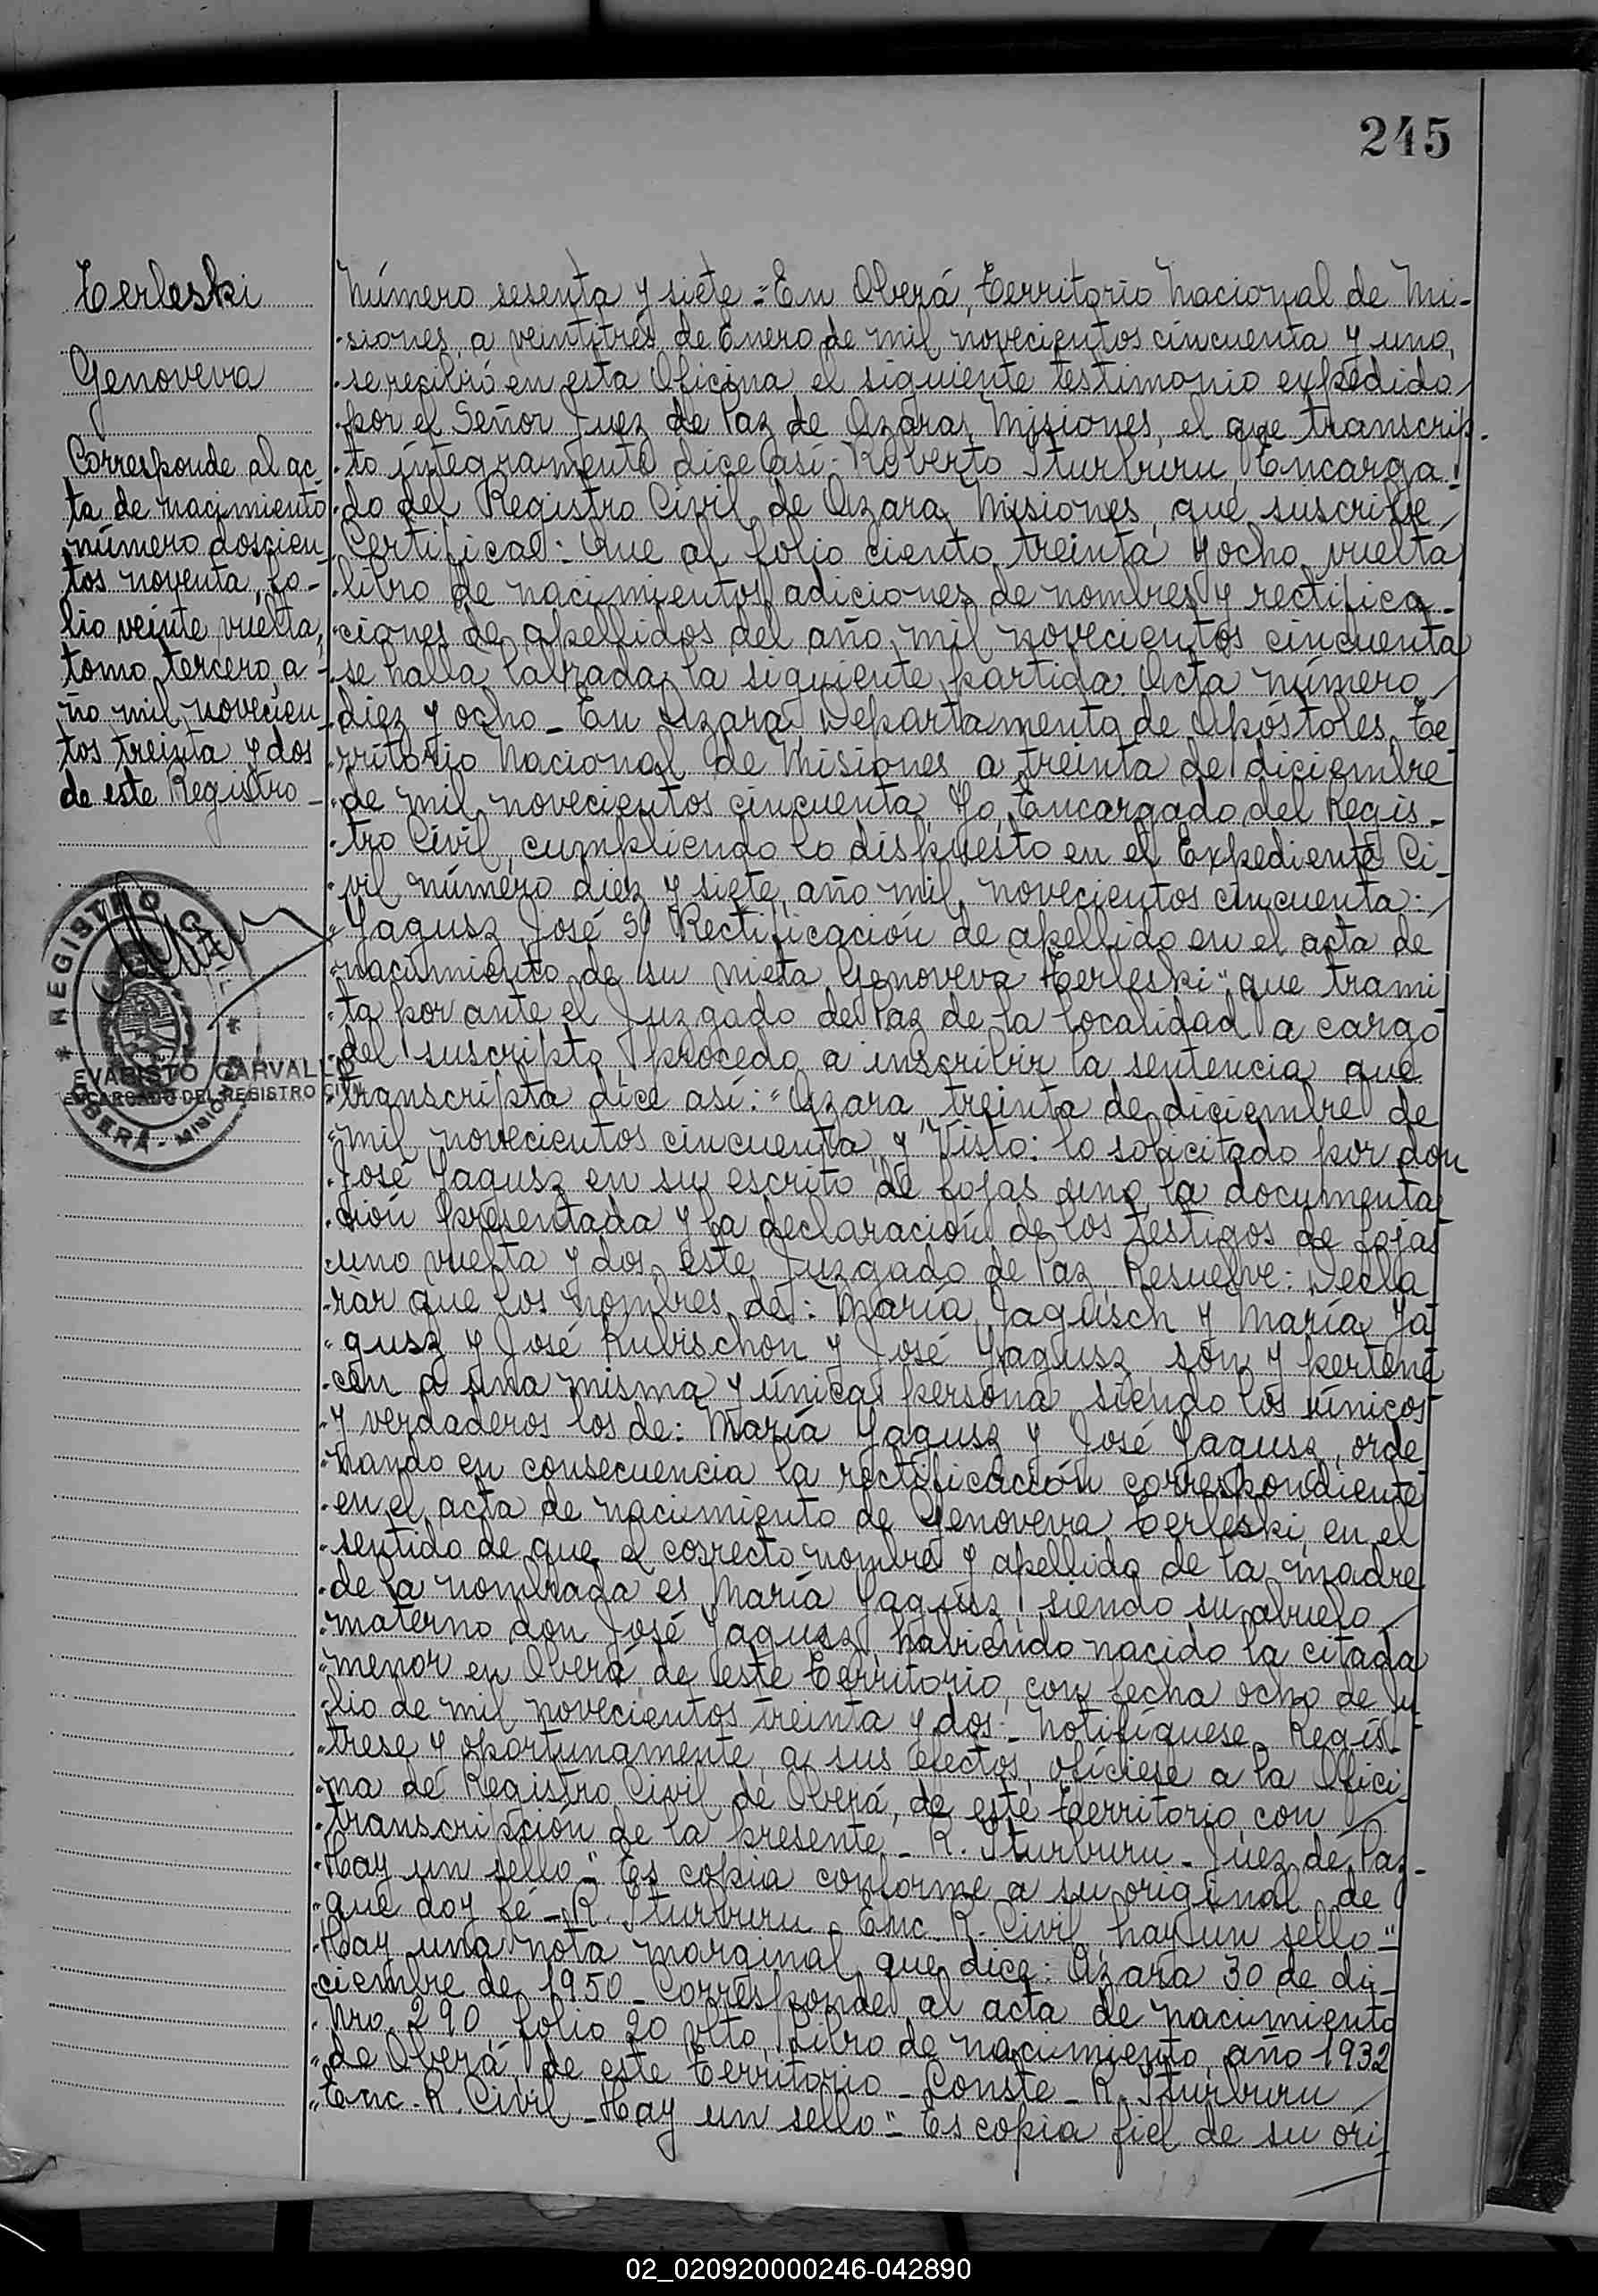 245
Terleski
Genoveva
Corresponde al ac
ta de nacimiento
número doscien
tos noventa, fo-
lio veinte vuelta,
tomo tercero, a-
ño mil novecien
tos treinta y dos
de este Registro -
* REGISTRO CIVIL *
EVARISTO CARVALLO
ENCARGADO DEL REGISTRO CIVIL
OBERÁ - MISIONES
Número sesenta y siete = En Oberá, Territorio Nacional de Mi-
siones, a veintitrés de Enero de mil novecientos cincuenta y uno,
se recibió en esta Oficina el siguiente testimonio expedido
por el Señor Juez de Paz de Azara, Misiones, el que transcrip-
to íntegramente dice así: Roberto Iturburu, Encarga-
do del Registro Civil de Azara, Misiones, que suscribe
Certifica: Que al folio ciento treinta y ocho vuelta
libro de nacimientos, adiciones de nombres y rectifica-
ciones de apellidos del año mil novecientos cincuenta
se halla labrada la siguiente partida: Acta número
diez y ocho - En Azara, Departamento de Apóstoles, Te-
rritorio Nacional de Misiones, a treinta de diciembre
de mil novecientos cincuenta, Yo, Encargado del Regis-
tro Civil, cumpliendo lo dispuesto en el Expediente Ci-
vil número diez y siete, año mil novecientos cincuenta:
"Yagusz José S/ Rectificación de apellido en el acta de
nacimiento de su nieta Genoveva Terleski", que trami
ta por ante el Juzgado de Paz de la localidad a cargo
del suscripto, procedo a inscribir la sentencia que
transcripta dice así: "Azara, treinta de diciembre de
mil novecientos cincuenta, y Visto: lo solicitado por don
José Yagusz en su escrito de fojas uno, la documenta
ción presentada y la declaración de los testigos de fojas
uno vuelta y dos, este Juzgado de Paz, Resuelve: Decla
rar que los nombres de: María Jagusch y María Ja
gusz y José Kubischon y José Yagusz, son y pertene
cen a una misma y única persona siendo los únicos
y verdaderos los de: María Yagusz y José Yagusz, orde
nando en consecuencia la rectificación correspondiente
en el acta de nacimiento de Genoveva Terleski, en el
sentido de que el correcto nombre y apellido de la madre
de la nombrada es María Yagusz, siendo su abuelo
materno don José Yagusz, habiendo nacido la citada
menor en Oberá de este Territorio, con fecha ocho de ju
lio de mil novecientos treinta y dos.- Notifíquese - Regís-
trese y oportunamente, a sus efectos, ofíciese a la Ofici-
na de Registro Civil de Oberá, de este Territorio, con
transcripción de la presente - R. Iturburu - Juez de Paz -
Hay un sello." Es copia conforme a su original, de
que doy fé - R. Iturburu - Enc. R. Civil, hay un sello -"
Hay una nota marginal que dice: Azara 30 de di-
ciembre de 1950 - Corresponde al acta de nacimiento
Nro 290 folio 20 vlto, Libro de nacimiento, año 1932
de Oberá, de este Territorio - Conste - R. Iturburu
Enc. R. Civil - Hay un sello"- Es copia fiel de su ori
02_020920000246-042890